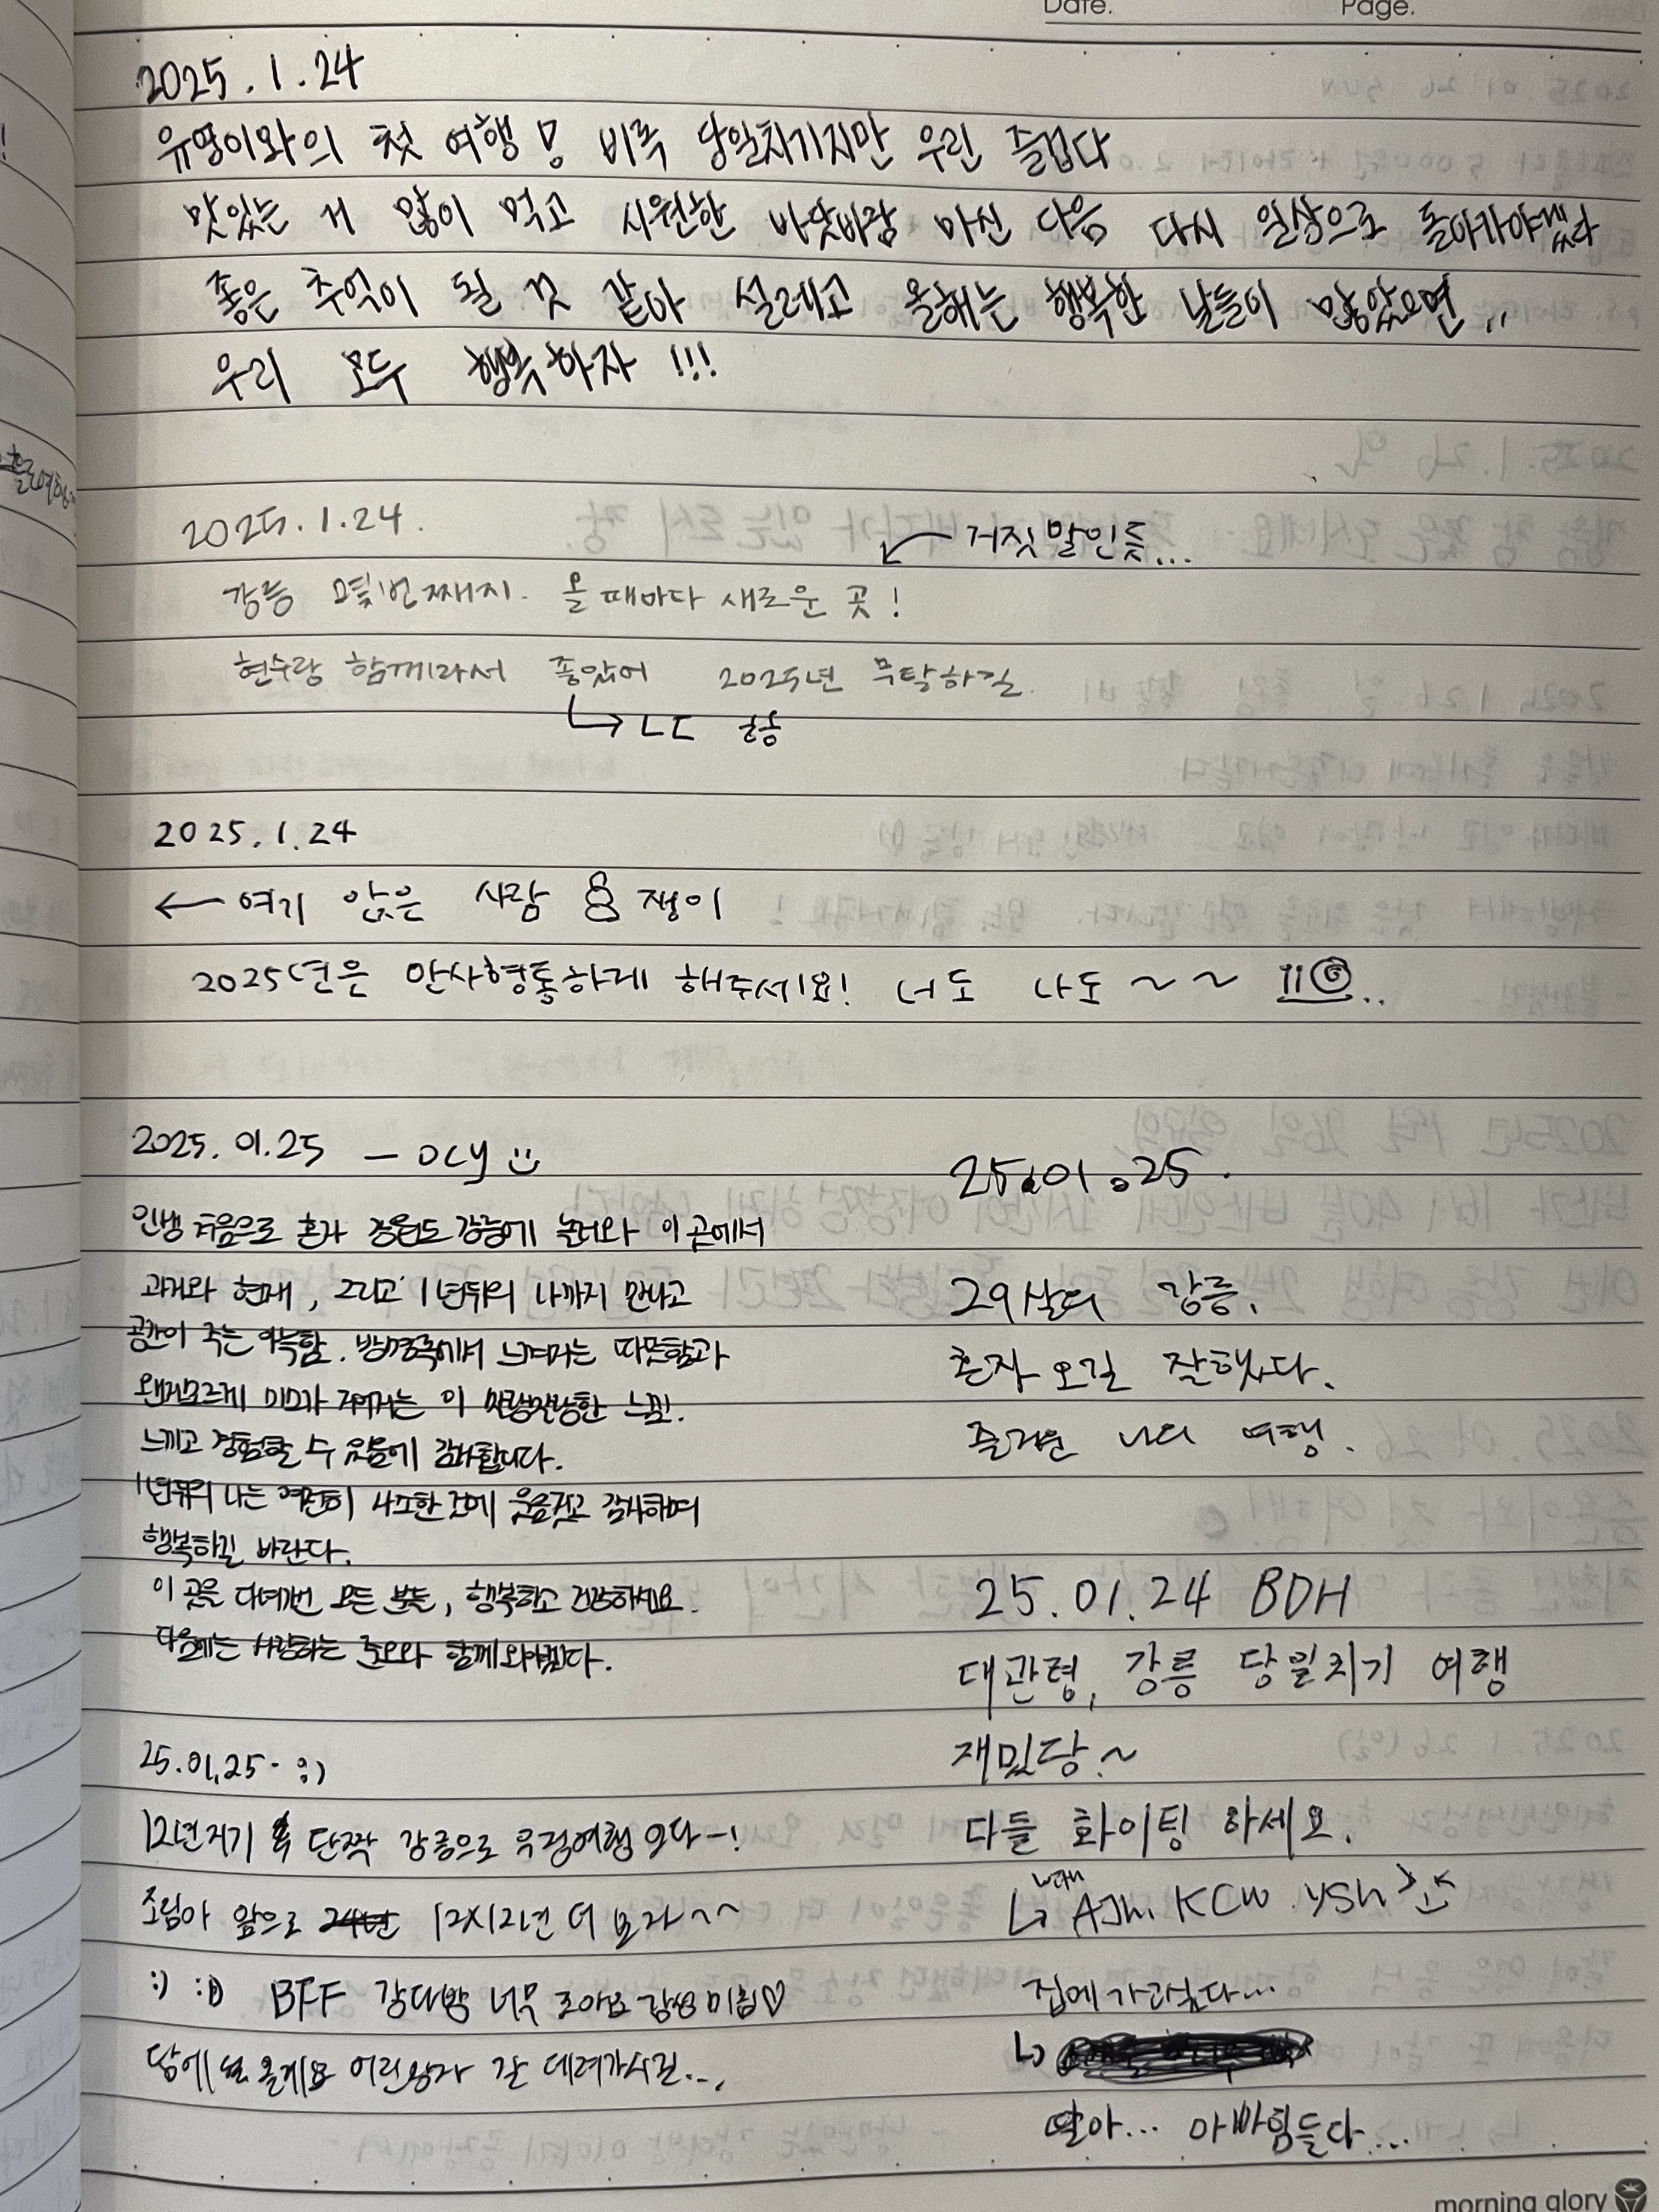 Date. Page.
2025.1.24
유영이와의 첫 여행 비록 당일치기지만 우린 즐겁다
맛있는 거 많이 먹고 시원한 바닷바람 마신 다음 다시 일상으로 돌아가야겠다
좋은 추억이 될 것 같아 설레고 올해는 행복한 날들이 많았으면..
우리 모두 행복하자 !!!
2025.1.24.
거짓말인듯...
강릉 몇번째지. 올 때마다 새로운 곳!
현수랑 함께라서 좋았어 2025년 무탈하길.
ㄴㄷ ㅎㅎ
2025.1.24
← 여기 앉은 사람 쟁이
2025년은 만사형통하게 해주세요! 너도 나도 ~ ~
2025.01.25 — OCY
인생 처음으로 혼자 강원도 강릉에 놀러와 이 곳에서
과거와 현재, 그리고 1년뒤의 나까지 만나고
공간이 주는 아늑함. 방명록에서 느껴지는 따뜻함과
왠지모르게 미소가 지어지는 이 말랑말랑한 느낌.
느끼고 경험할 수 있음에 감사합니다.
1년뒤의 나는 여전히 사소한 것에 웃음짓고 감사하며
행복하길 바란다.
이 곳을 다녀간 모든 분들, 행복하고 건강하세요.
다음에는 사랑하는 와 함께 와야겠다.
25.01.25
29살의 강릉.
혼자 오길 잘했다.
즐거운 나의 여행.
25.01.24 BDH
대관령, 강릉 당일치기 여행
재밌당~
다들 화이팅 하세요.
with
↳ AJH. KCW. YSH
집에 가고싶다...
↳
딸아... 아빠힘들다....
25.01.25- :)
12년지기 단짝 강릉으로 우정여행 오다-!
조림아 앞으로 24년 12X12년 더 보자~~
:) :D BFF 강다방 너무 조아요 감성 미침♡
담에 또 올게요 어린왕자 잘 데려가시길...
morning glory